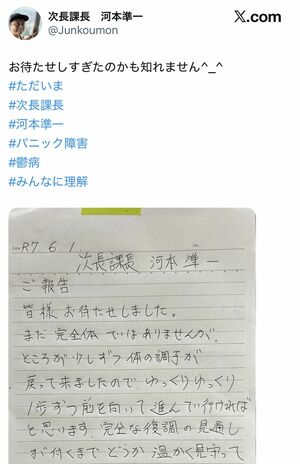 次長課長 河本準一
X.com
@Junkoumon
お待たせしすぎたのかも知れません^_^
#ただいま
#次長課長
#河本準一
#パニック障害
#鬱病
#みんなに理解
Date R7 . 6 . 1
No.
次長課長 河本 準一
ご報告
皆様 お待たせしました。
まだ 完全体 ではありませんが、
ところが少しずつ 体の調子が
戻って来ましたので ゆっくりゆっくり
1歩ずつ前を向いて進んで行ければ
と思います。完全な復調の見通し
が付くまで どうか 温かく見守って